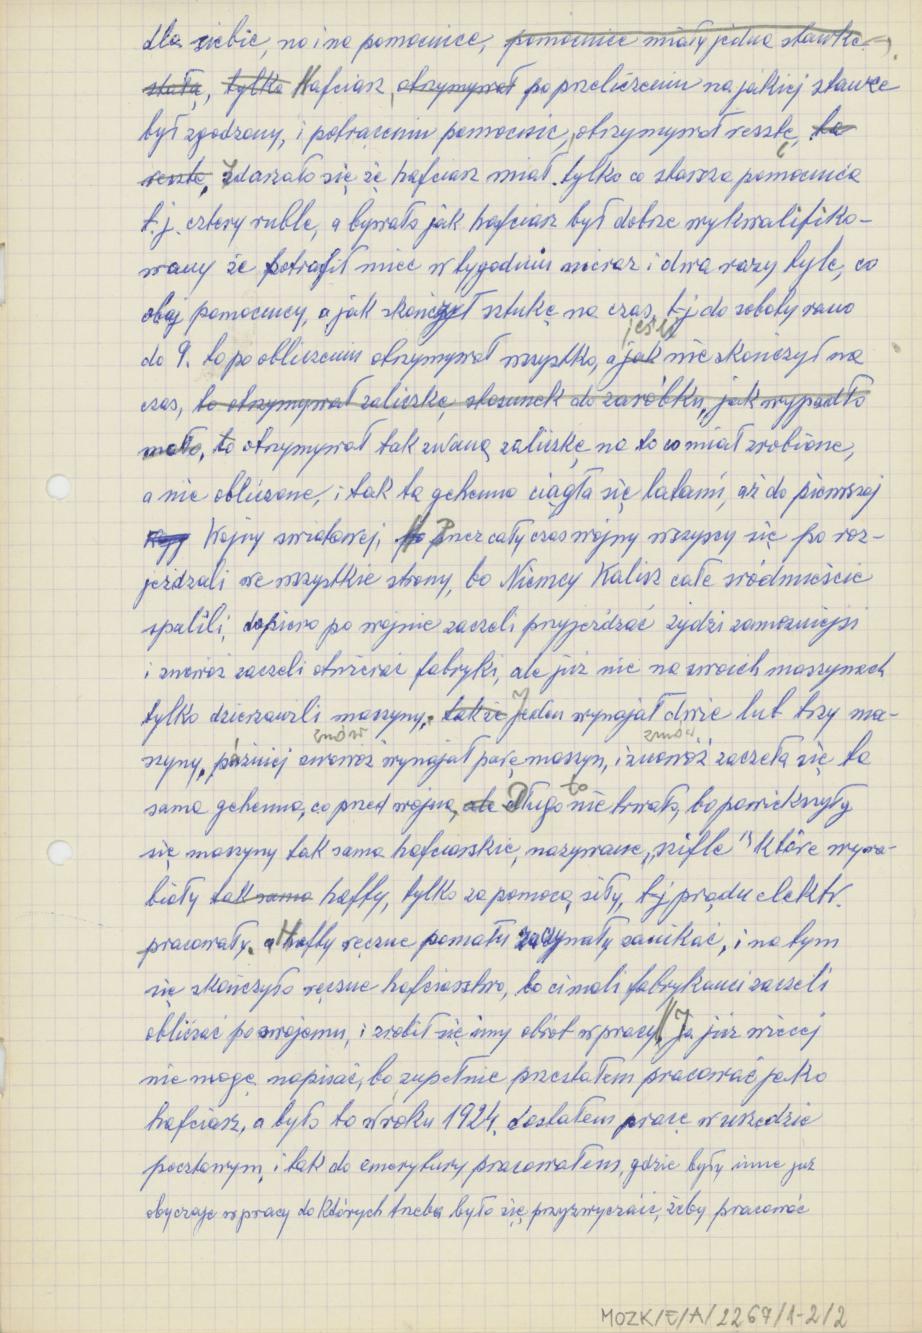 dla siebie, no i na pomocnice, pomocnice miały jedną stawkę
stałą, tylko Hafciarz otrzymywał po przeliczeniu na jakiej stawce
był zgodzony, i potrąceniu pomocnic, otrzymywał resztę, ta
resztę, zdarzało się że hafciarz miał tylko co starsza pomocnica
t.j. cztery ruble, a bywało jak hafciarz był dobrze wykwalifiko-
wany że potrafił mieć w tygodniu nieraz i dwa razy tyle, co
obaj pomocnicy, a jak skończył sztukę na czas, t-j do soboty rano
jeśli
do 9. to po obliczeniu otrzymywał wszystko, a jak nie skończył na
czas, to otrzymywał zaliczkę, stosunek do zarobku, jak wypadło
mało, to otrzymywał tak zwaną zaliczkę na to co miał zrobione,
a nie obliczone, i tak ta gehenna ciągła się latami, aż do pierwszej
Wojny swiatowej, Przez cały czas wojny wszyscy się po roz-
jeżdzali we wszystkie strony, bo Niemcy Kalisz całe sródmieście
spalili, dopiero po wojnie zaczeli przyjeżdzać żydzi zamożniejsi
i znowóż zaczeli otwierać fabryki, ale już nie na swoich maszynach
tylko dzierzawili maszyny, także Jeden wynajął dwie lub trzy ma-
znów znów
szyny, pózniej znowóż wynajął parę maszyn, i znowóż zaczeła się ta
to
sama gehenna, co przed wojną, ale Długo nie trwało, bo powiekszyły
się maszyny tak samo hafciarskie, nazywane, „szifle" które wyra-
biały tak samo hafty, tylko za pomocą siły, t-j prądu elektr.
pracowały, a Hafty ręczne pomału zaczynały zanikać, i na tym
się skończyło ręczne hafciarstwo, bo ci mali fabrykanci zaczeli
obliczać po swojemu, i zrobił się inny obrot w pracy, Ja już więcej
nie mogę napisać, bo zupełnie przestałem pracować jako
hafciarz, a było to w roku 1924, dostałem pracę w urzędzie
pocztowym, i tak do emerytury pracowałem, gdzie były inne już
obyczaje w pracy do których trzeba było się przyzwyczaić, żeby pracować
MOZK/E/A/2267/1-2/2